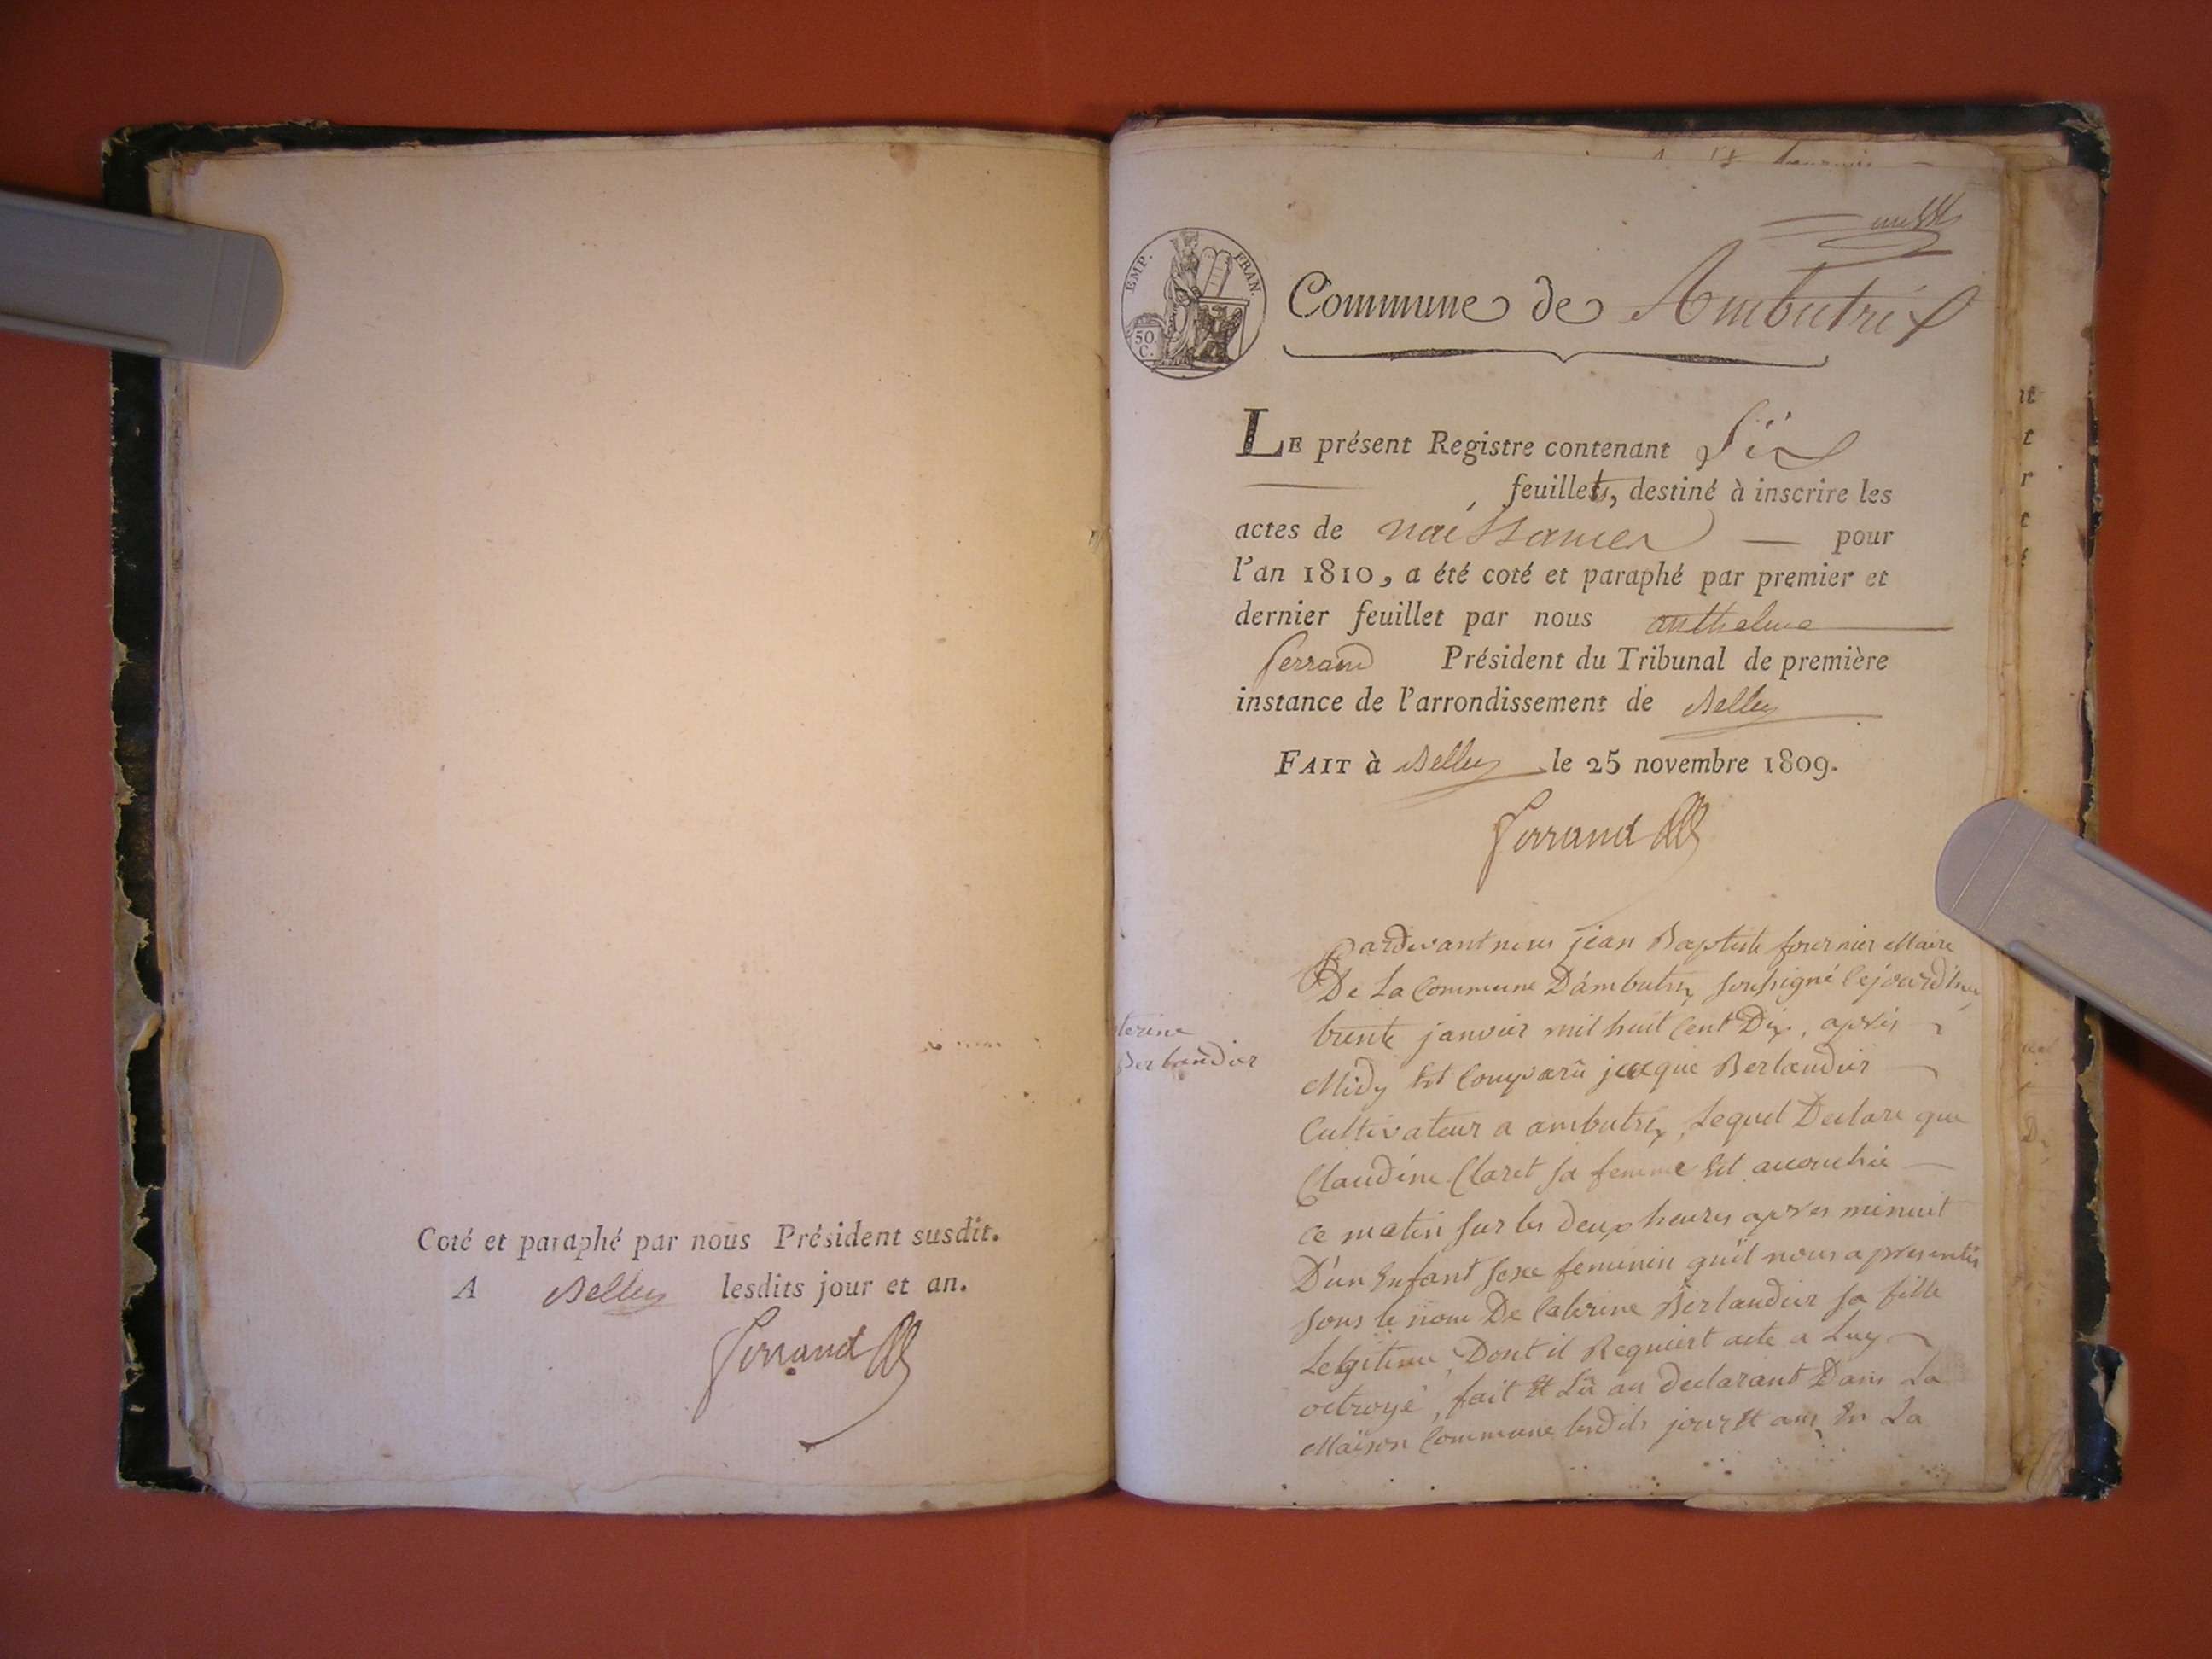 Coté et paraphé par nous Président susdit.
A Belley lesdits jour et an.
Ferrand
EMP. FRAN.
50 C.
Commune de Ambutrix
LE présent Registre contenant Six
feuillets, destiné à inscrire les
actes de naissances — pour
l'an 1810, a été coté et paraphé par premier et
dernier feuillet par nous anthelme
ferrand Président du Tribunal de première
instance de l'arrondissement de Belley
FAIT à Belley le 25 novembre 1809.
Ferrand
terine
Berlandier
Pardevant nous jean Baptiste fournier Maire
De La Commune D'ambutrix soussigné Cejourd'huy
trente janvier mil huit Cent Dix, après
Midy Est Comparû jacque Berlandier
Cultivateur a ambutrix, Lequel Declare que
Claudine Claret sa femme Est accouchée
ce matin sur les deux heures apres minuit
D'un Enfant sexe feminin qu'il nous a presentée
sous le nom De Caterine Berlandier sa fille
Legitime, Dont il Requiert acte a Luy
octroyé, fait Et Lû au declarant Dans La
Maison Commune lesdits jour Et an, En La